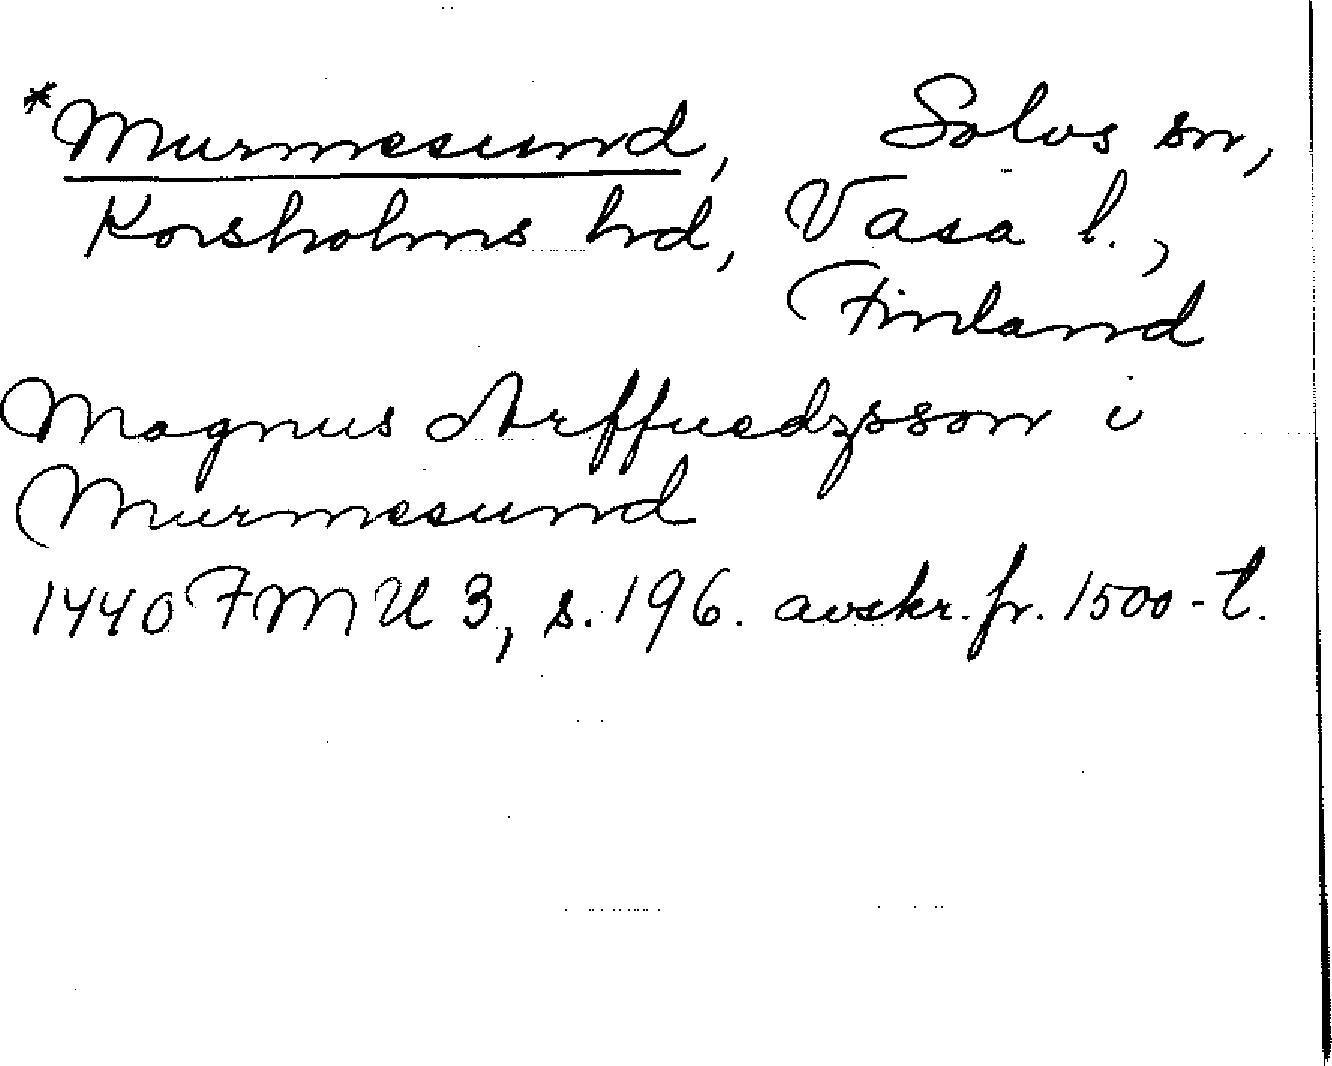 *Murmesund, Solvs sn,
Korsholms hd, Vasa l.,
Finland
Magnus Arffuedzsson i
Murmesund
1440 FMU 3, s. 196. avskr. fr. 1500-t.